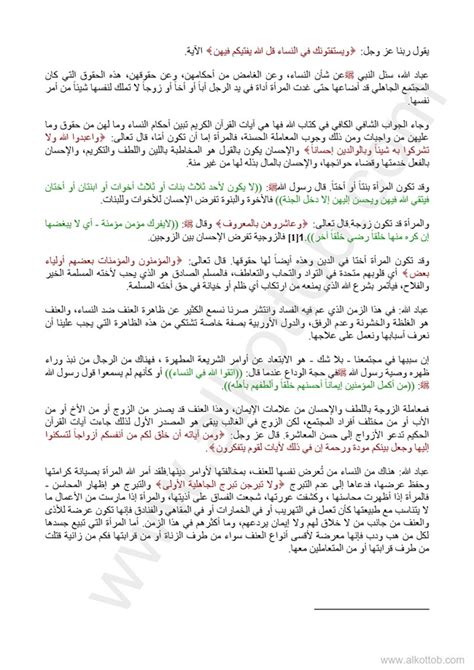 يقول ربنا عز وجل: ﴿ويستفتونك في النساء قل الله يفتيكم فيهن﴾ الآية.
عباد الله، سئل النبي ﷺ عن شأن النساء، وعن الغامض من أحكامهن، وعن حقوقهن، هذه الحقوق التي كان
المجتمع الجاهلي قد أضاعها حتى غدت المرأة أداة في يد الرجل أباً أو أخاً أو زوجاً لا تملك لنفسها شيئاً من أمر
نفسها.
وجاء الجواب الشافي الكافي في كتاب الله فها هي آيات القرآن الكريم تبين أحكام النساء وما لهن من حقوق وما
عليهن من واجبات ومن ذلك وجوب المعاملة الحسنة، فالمرأة إما أن تكون أمًا، قال تعالى: ﴿ولا
تشركوا به شيئاً وبالوالدين إحساناً﴾ والإحسان يكون بالقول هو المخاطبة باللين واللطف والتكريم، والإحسان
بالفعل خدمتها وقضاء حوائجها، والإحسان بالمال بذله لها من غير منة.
وقد تكون المرأة بنتاً أو أختاً. قال رسول الله ﷺ: ((لا يكون لأحد ثلاث بنات أو ثلاث أخوات أو ابنتان أو أختان
فيتقي الله فيهن ويحسن إليهن إلا دخل الجنة)) فالأخوة والبنوة تفرض الإحسان للأخوات وللبنات.
والمرأة قد تكون زوجة.قال تعالى: ﴿وعاشروهن بالمعروف﴾ وقال ﷺ: ((لايفرك مؤمن مؤمنة - أي لا يبغضها
إن كره منها خلقاً رضي خلقاً آخر)).[1]1 فالزوجية تفرض الإحسان بين الزوجين.
وقد تكون المرأة أختا في الدين وهذه أيضاً لها حقوقها. قال تعالى: ﴿والمؤمنون والمؤمنات بعضهم أولياء
بعض﴾ أي قلوبهم متحدة في التواد والتحاب والتعاطف، فالمسلم الصادق هو الذي يحب لأخته المسلمة الخير
والفلاح، فيأتمر بشرع الله الذي يمنعه من ارتكاب أي ظلم أو خيانة في حق أخته المسلمة.
عباد الله: في هذا الزمن الذي عم فيه الفساد وانتشر صرنا نسمع الكثير عن ظاهرة العنف ضد النساء، والعنف
هو الغلظة والخشونة وعدم الرفق، والدول الأوربية بصفة خاصة تشتكي من هذه الظاهرة التي يجب علينا أن
نعرف أسبابها ونعمل على علاجها.
إن سببها في مجتمعنا - بلا شك - هو الابتعاد عن أوامر الشريعة المطهرة ، فهناك من الرجال من نبذ وراء
ظهره وصية رسول الله ﷺ في حجة الوداع عندما قال: ((اتقوا الله في النساء)) أو كأنهم لم يسمعوا قول رسول الله
ﷺ: ((من أكمل المؤمنين إيماناً أحسنهم خلقاً وألطفهم بأهله)).
فمعاملة الزوجة باللطف والإحسان من علامات الإيمان، وهذا العنف قد يصدر من الزوج أو من الأخ أو من
الأب أو من مختلف أفراد المجتمع، لكن الزوج في الغالب يبقى هو المصدر الأول لذلك جاءت آيات القرآن
الحكيم تدعو الأزواج إلى حسن المعاشرة. قال عز وجل: ﴿ومن آياته أن خلق لكم من أنفسكم أزواجاً لتسكنوا
إليها وجعل بينكم مودة ورحمة إن في ذلك لآيات لقوم يتفكرون﴾.
عباد الله: هناك من النساء من تُعرض نفسها للعنف، بمخالفتها لأوامر دينها.فلقد أمر الله المرأة بصيانة كرامتها
وحفظ عرضها، فدعاها إلى عدم التبرج ﴿ولا تبرجن تبرج الجاهلية الأولى﴾ والتبرج هو إظهار المحاسن -
فالمرأة إذا أظهرت محاسنها ، وكشفت عورتها، شجعت الفساق على أذيتها، والمرأة إذا مارست من الأعمال ما
لا يتناسب مع طبيعتها كأن تعمل في التهريب أو في الخمارات أو في المقاهي والفنادق فإنها تكون عرضة للأذى
والعنف من جانب من لا خلاق لهم ولا إيمان يردعهم، وما أكثرهم في هذا الزمن. أما المرأة التي تبيع جسدها
لكل من هب ودب فإنها معرضة لأقسى أنواع العنف سواء من طرف الزناة أو من قرابتها فكم من زانية قتلت
من طرف قرابتها أو من المتعاملين معها.
www.alkottob.com
www.alkottob.com